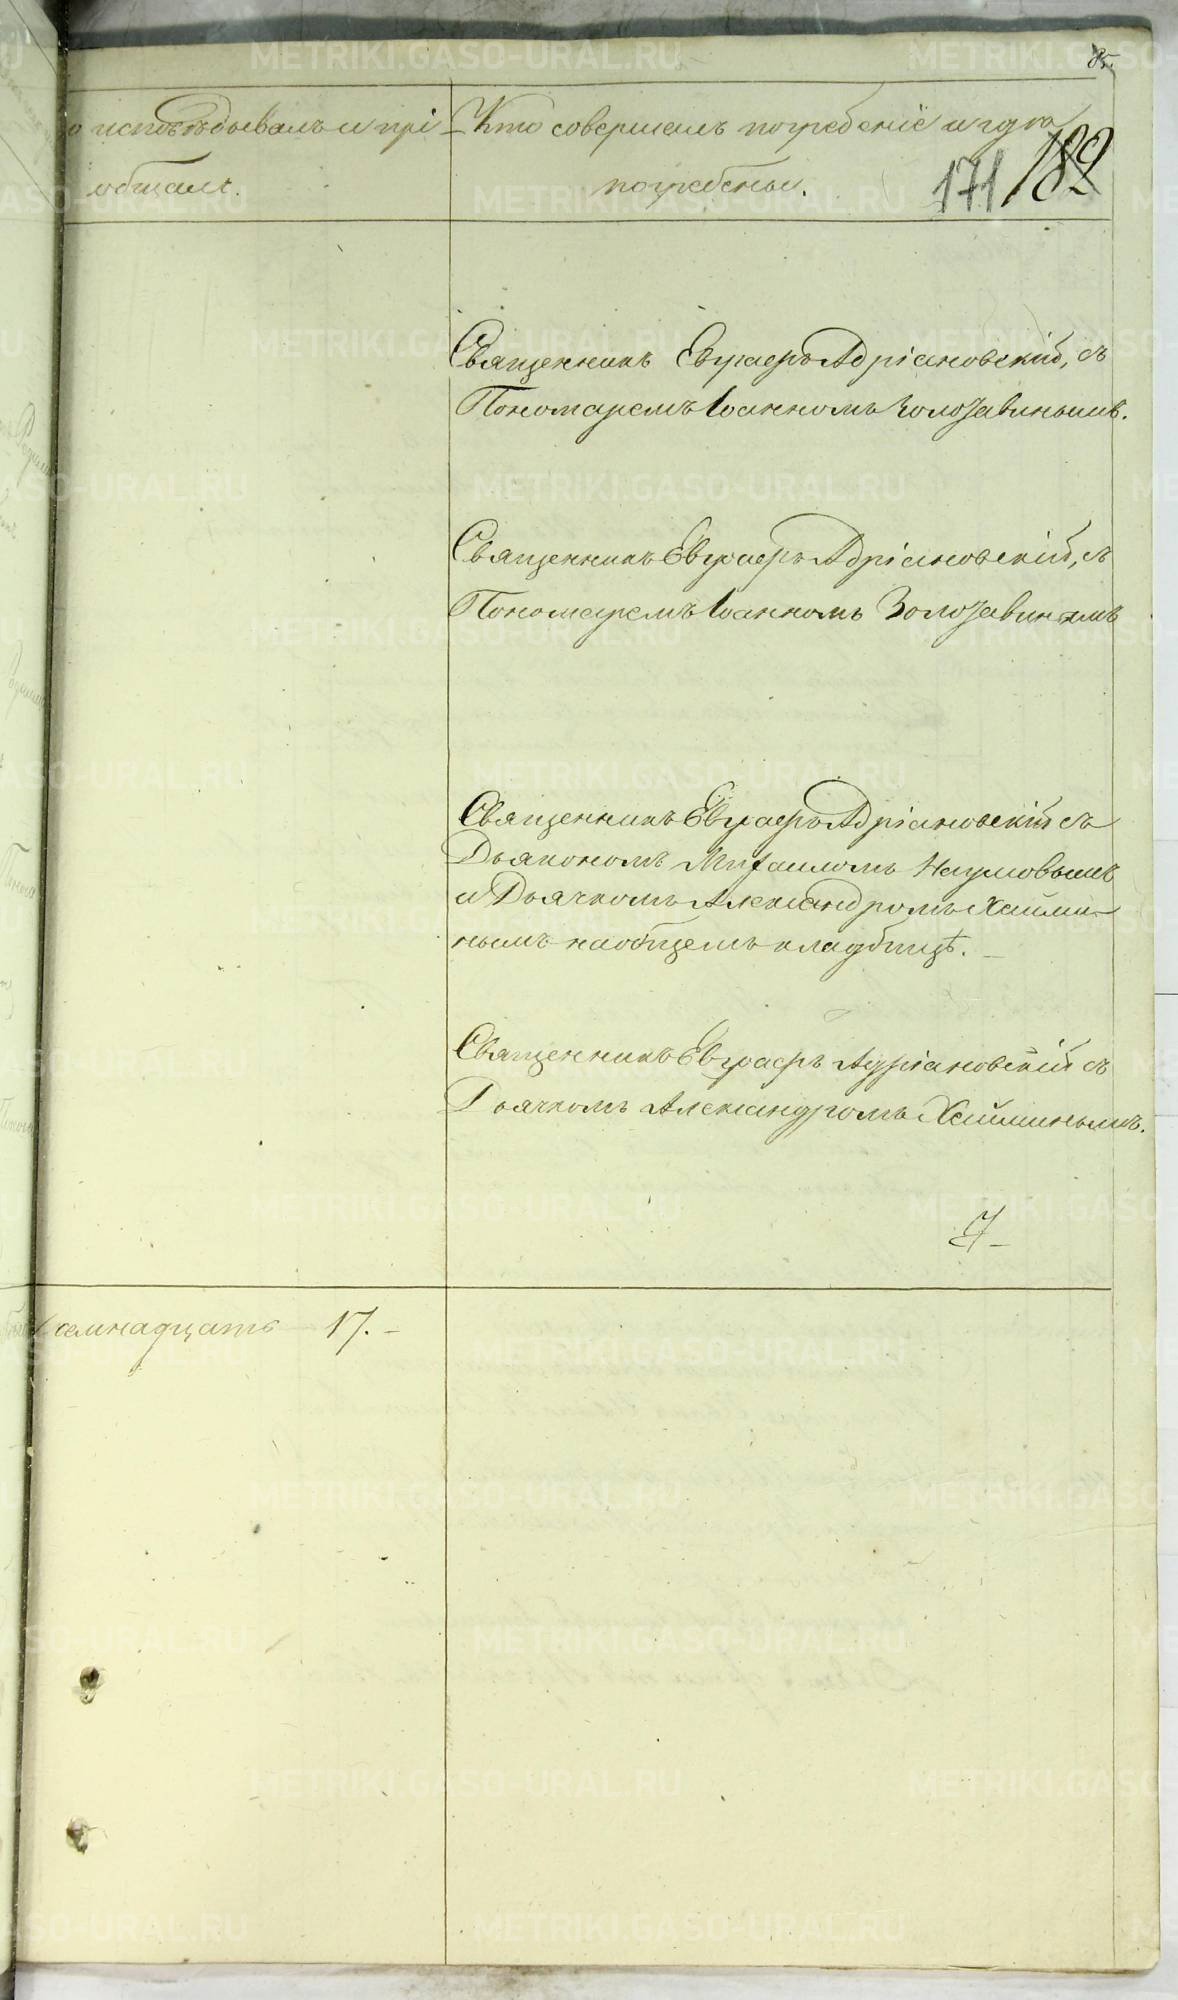 85.
о исповѣдывалъ и прі-
общалъ.
Кто совершалъ погребеніе и гдѣ
погребены.
171 182
Священникъ Евграфъ Адріановскій, съ
Пономаремъ Іоанномъ Золотавинымъ.
Священникъ Евграфъ Адріановскій, съ
Пономаремъ Іоанномъ Золотавинымъ
Священникъ Евграфъ Адріановскій съ
Дьякономъ Михаиломъ Наумовымъ
и Дьячкомъ Александромъ Хаими-
нымъ на общемъ кладбищѣ.
Священникъ Евграфъ Адріановскій съ
Дьячкомъ Александромъ Хайминымъ.
семнадцать 17.
METRIKI.GASO-URAL.RU